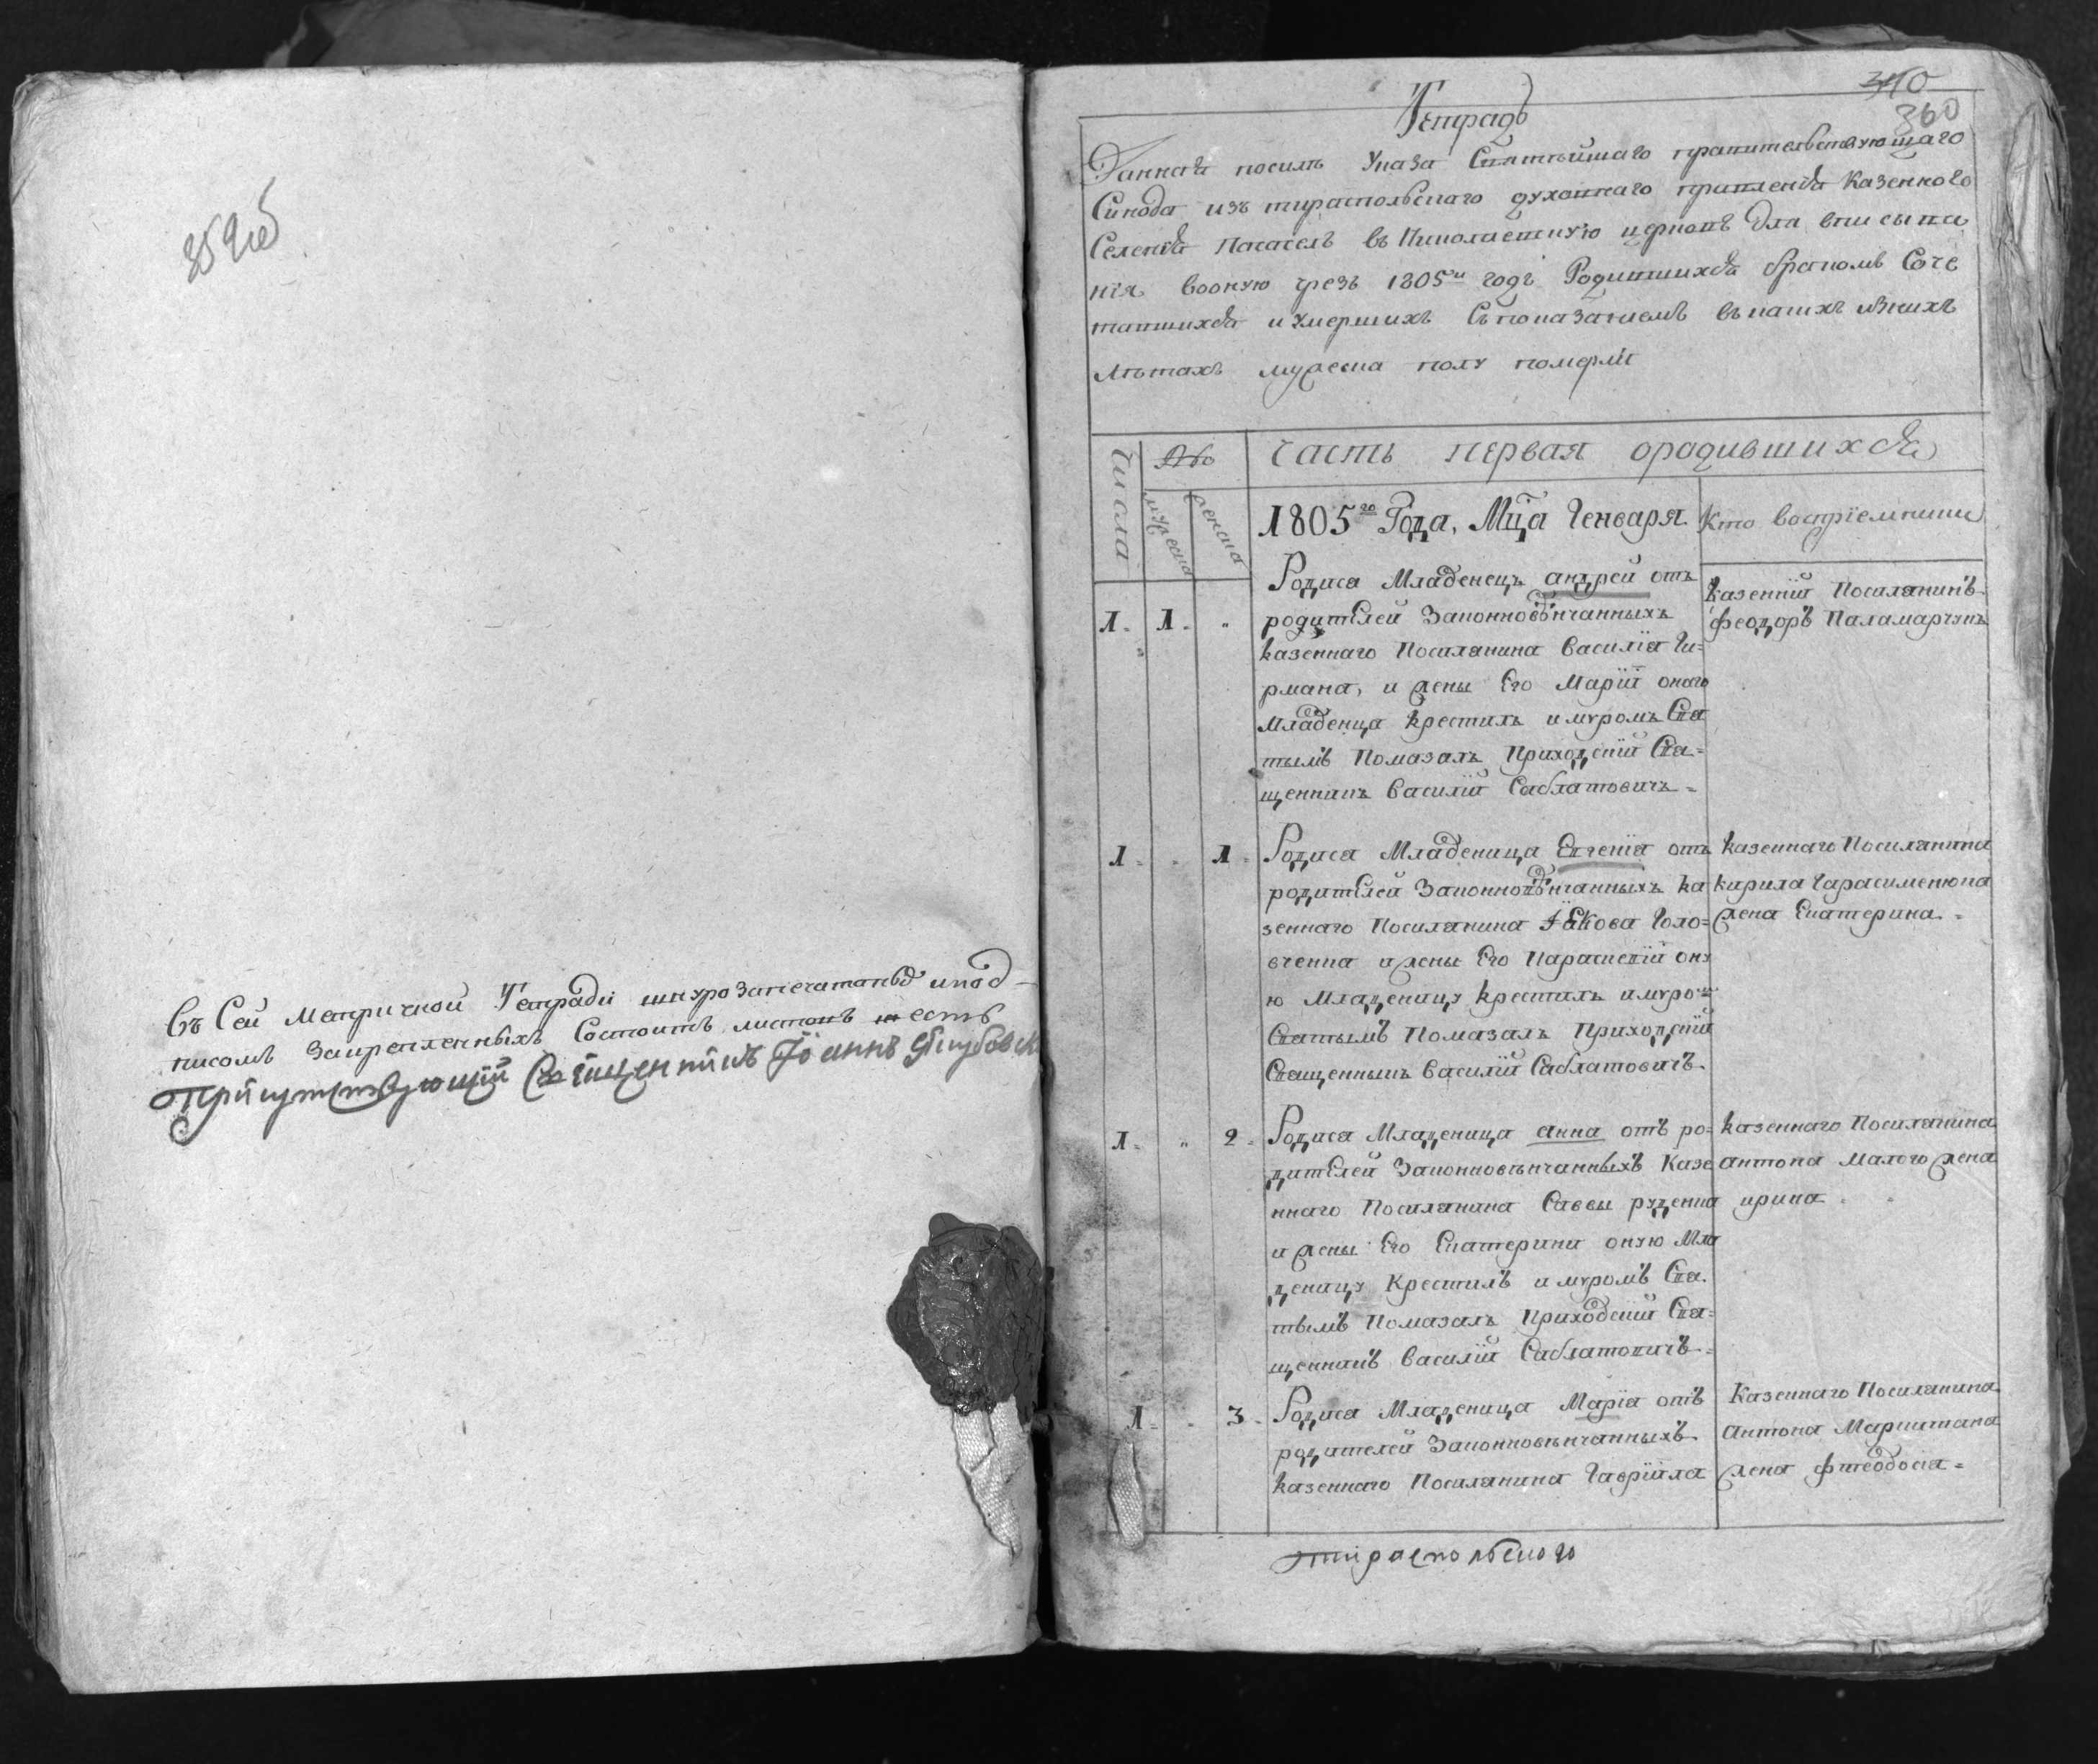 359об
Въ Сей Метричной Тетради шнурозапечатаной и под-
писомъ закрепленныхъ Состоитъ листовъ шесть
Присутствующій Священникъ Іоаннъ
340
360
Тетрадь
Данная посилѣ Указа Святѣйшаго правительствующаго
Синода изъ тираспольскаго духовнаго правленія Казенного
Селенія Пасасель въ Николаевскую церковь для вписыва
нія вооную чрезъ 1805й годъ Родившихся бракомъ Соче
тавшихся и умершихъ Съ показаниемъ въ какихъ
лѣтахъ мужеска полу померли
Числа
№
мужеска
женска
часть первая ородившихся
1805го Года, Мца Генваря
Кто восприемники
Родися Младенецъ андрей отъ
1. 1. "
родителей Законновѣнчанныхъ
казенного Поселянина Василія Ги=
рмана, и жены Его Маріи оного
Младенца крестилъ и муромъ Свя
тымъ Помазалъ Приходскій Свя=
щенникъ Василій Саблатовичъ =
казенній Поселянинъ
феодоръ Паламарчукъ
1 = " 1 =
Родися Младеница Евгенія отъ
родителей Законновѣнчанныхъ ка
зенного Поселянина Іякова Голо=
вченка и жены Его Параскевіи ону
ю Младеницу крестилъ и муромъ
Святымъ Помазалъ Приходскій
Священникъ Василій Саблатовичъ.
казенного Поселянина
кирила Гарасименюка
жена Екатерина. =
1 = " 2 =
Родися Младеница анна отъ ро=
дителей Законновѣнчанныхъ Казе
нного Поселянина Саввы руденка
и жены Его Екатерини оную Мла
деницу Крестилъ и муромъ Свя.
тымъ Помазалъ Приходскій Свя=
щенникъ Василій Саблатовичъ =
казенного Поселянина
антона Малого жена
ирина
1 = " 3 =
Родися Младеница Марія отъ
родителей Законновѣнчанныхъ
казенного Поселянина Гавріила
Казенного Поселянина
антона жена феодосія =
тираспольского